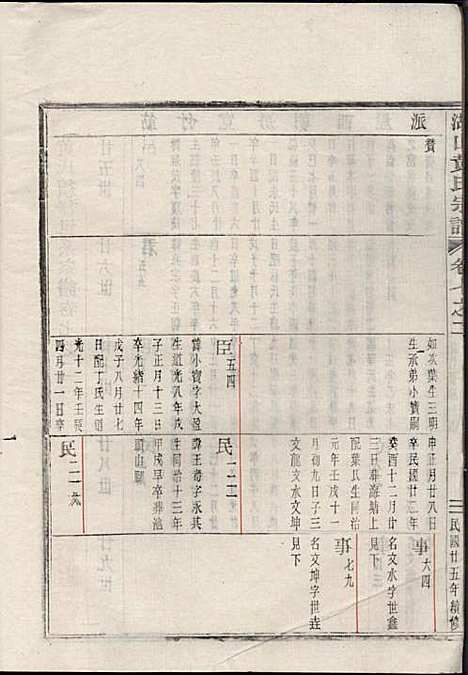 湖山黄氏宗譜
卷七之二
民國廿五年續修
派
贊
如次葉生三明
生承弟小寶嗣
臣
五四
諱小寶字大盈
生道光八年戊
子正月十三日
卒光緒十四年
戊子八月廿七
日配丁氏生道
光十二年壬辰
四月廿一日卒
申正月廿八日
辛民國廿三年
癸酉十二月廿
三日葬海塘上
配葉氏生同治
元年壬戌十一
月初九日子三
文龍文水文坤
民
諱王壽字永其
生同治十三年
甲戌早卒葬池
頭山腳
民
事
六四
名文水字世鑫
見下
事
七九
名文坤字世垚
見下